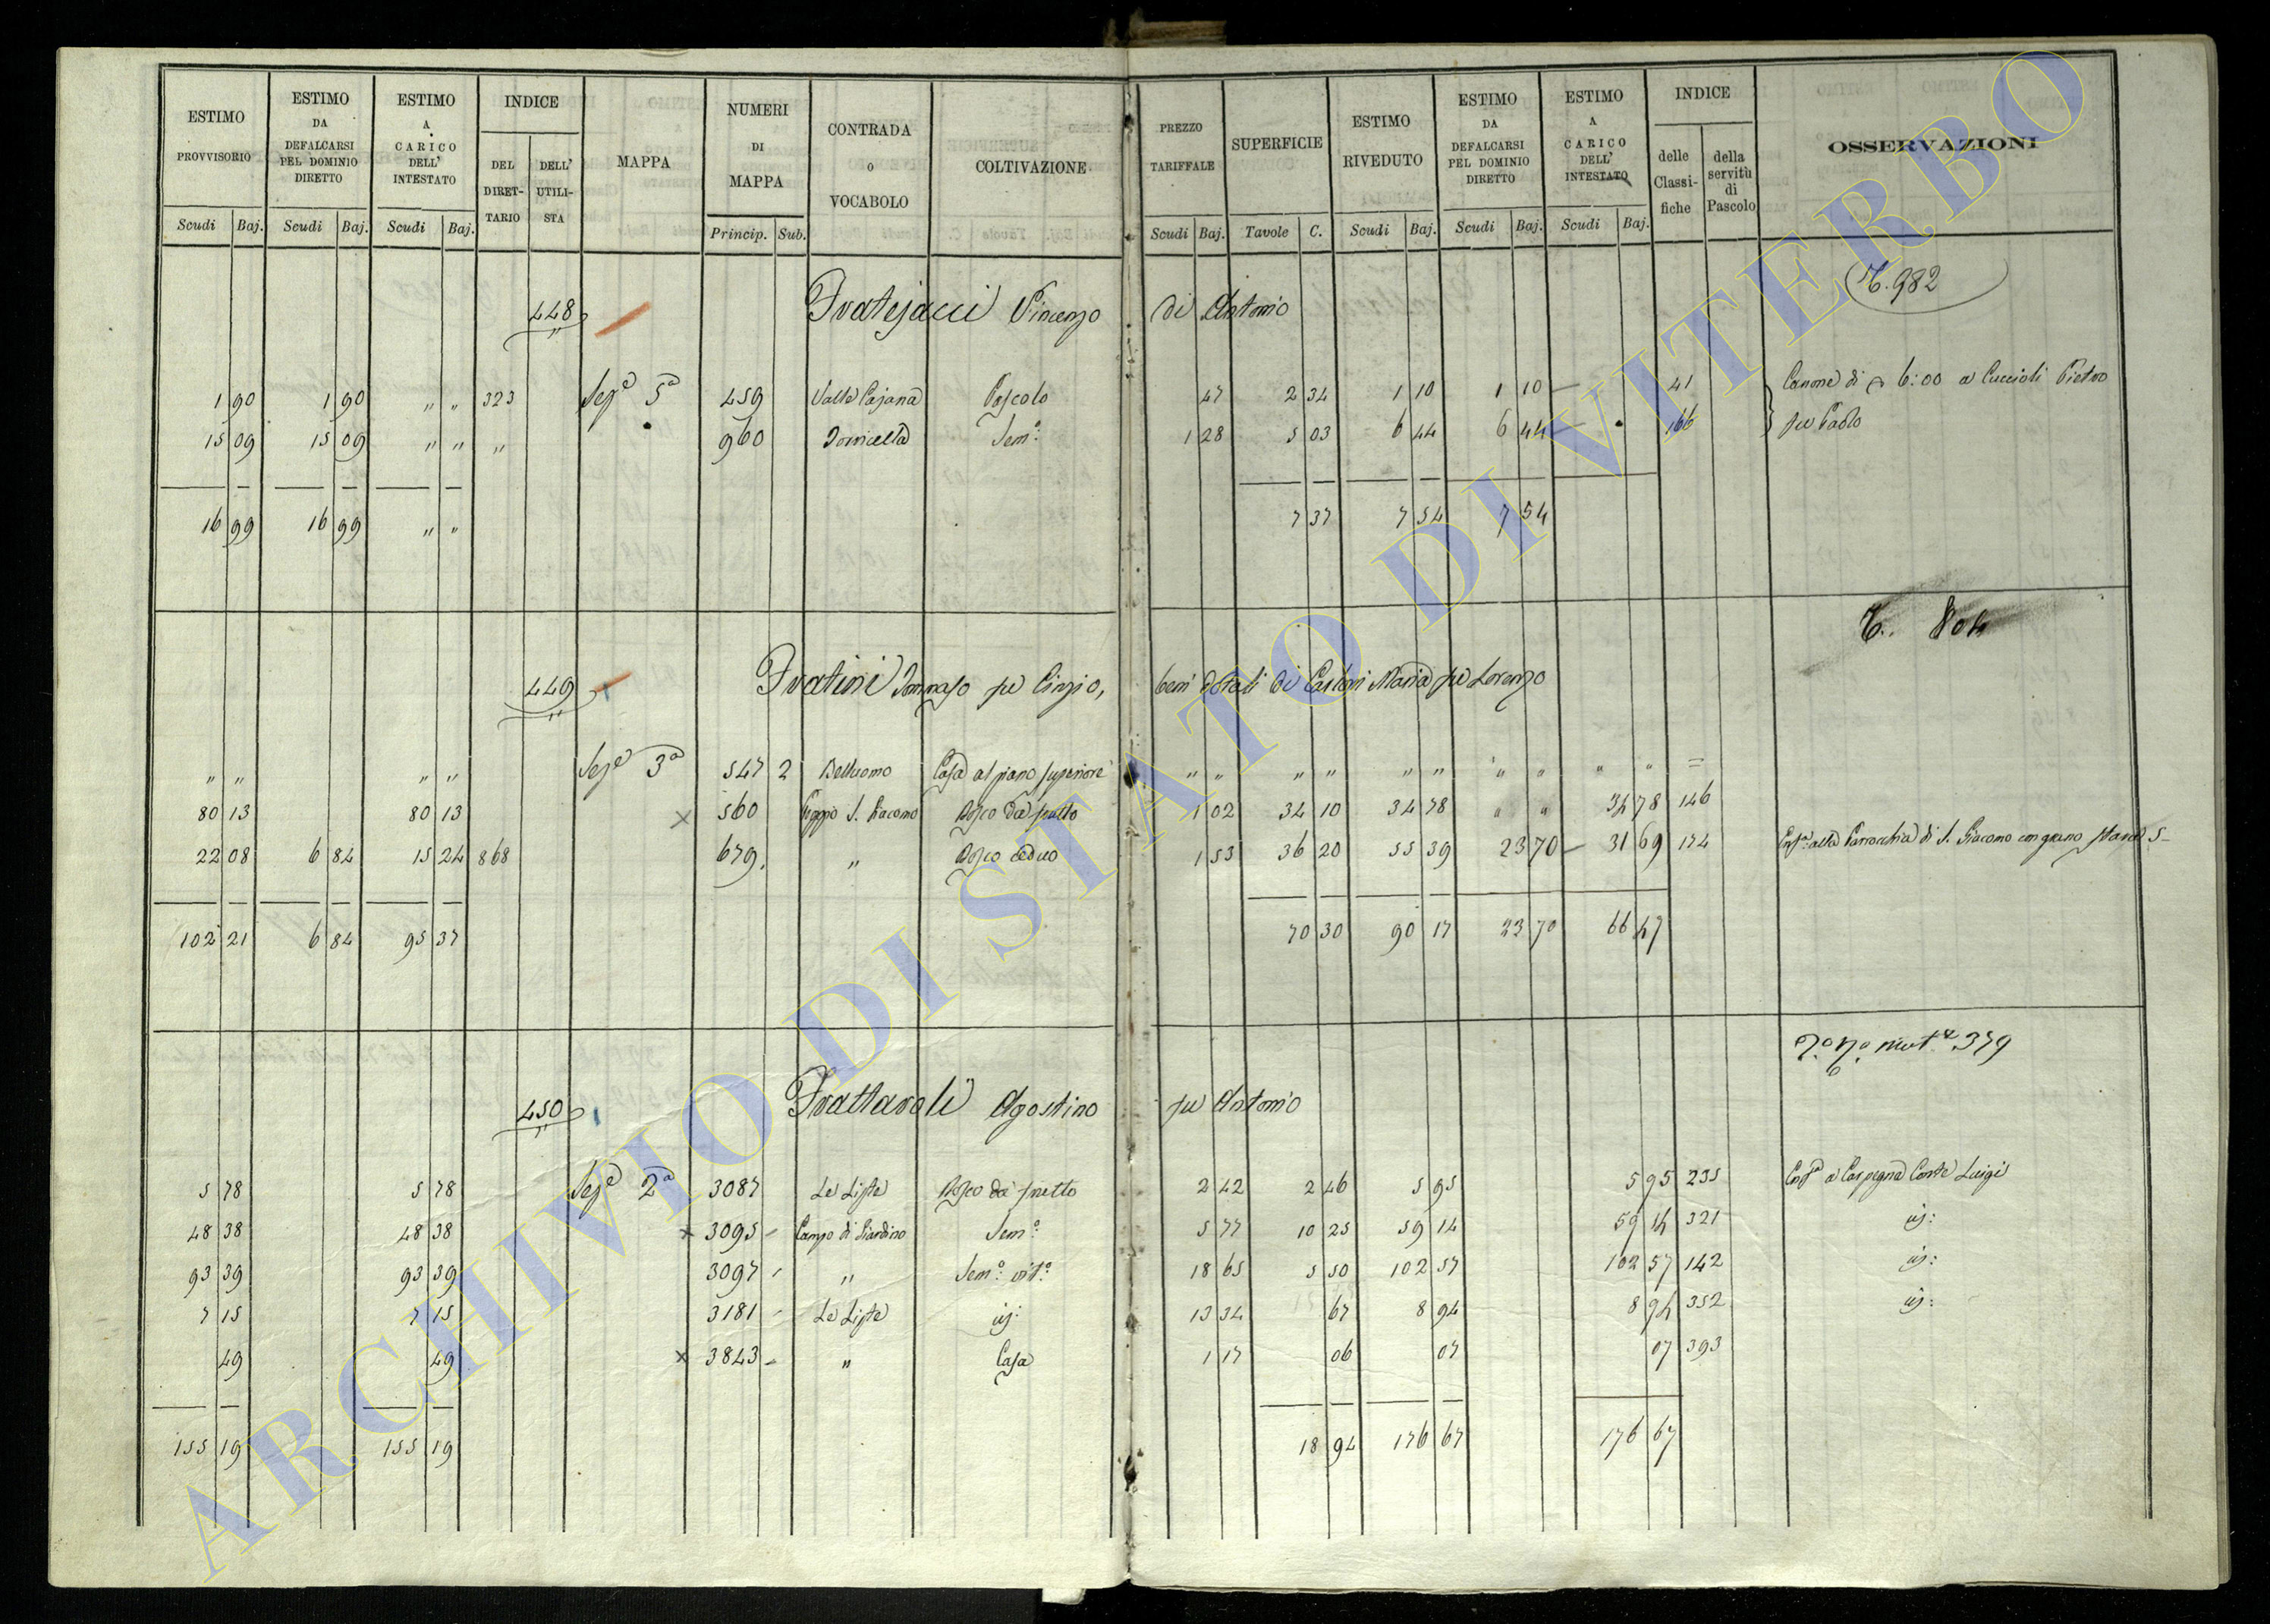 ESTIMO PROVVISORIO | ESTIMO DA DEFALCARSI PEL DOMINIO DIRETTO | ESTIMO A CARICO DELL' INTESTATO | INDICE | MAPPA | NUMERI DI MAPPA | CONTRADA O VOCABOLO | COLTIVAZIONE | PREZZO TARIFFALE | SUPERFICIE | ESTIMO RIVEDUTO | ESTIMO DA DEFALCARSI PEL DOMINIO DIRETTO | ESTIMO A CARICO DELL' INTESTATO | INDICE | OSSERVAZIONI
DEL DIRETTARIO | DELL' UTILISTA | delle Classifiche | della servitù di Pascolo
Scudi | Baj. | Scudi | Baj. | Scudi | Baj. | Princip. | Sub. | Scudi | Baj. | Tavole | C. | Scudi | Baj. | Scudi | Baj. | Scudi | Baj.
982
448 Fratejacci Vincenzo di Antonio
1 90 | 1 90 | " " | 323 | Sezᵉ 5ᵃ | 459 | Valle Cajana | Pascolo | 47 | 2 34 | 1 10 | 1 10 | — | 41 | Canone di 6:00 a Cuccioli Pietro
15 09 | 15 09 | " " | " | 960 | Torricella | Semᵒ: | 1 28 | 5 03 | 6 44 | 6 44 | — | 166 | fu Paolo
16 99 | 16 99 | " " | 7 37 | 7 54 | 7 54
804
449 Fratini Tommaso fu Cinzio, beni dotali di Maria fu Lorenzo
" " | " " | Sezᵉ 3ᵃ | 547 | 2 | Belluomo | Casa al piano superiore | " " | " " | " " | " " | " " | =
80 13 | 80 13 | × | 560 | Poggio S. Giacomo | Bosco da frutto | 1 02 | 34 10 | 34 78 | " " | 34 78 | 146
22 08 | 6 84 | 15 24 | 868 | 679. | " | Bosco ceduo | 1 53 | 36 20 | 55 39 | 23 70 — | 31 69 | 174 | alla Parrocchia di S. Giacomo con grano
102 21 | 6 84 | 95 37 | 70 30 | 90 17 | 23 70 | 66 47
379
450 Frattaroli Agostino fu Antonio
5 78 | 5 78 | Sezᵉ 2ᵃ | 3087 | Le Liste | Bosco da frutto | 2 42 | 2 46 | 5 95 | 5 95 | 235 | a Carpegna Conte Luigi
48 38 | 48 38 | × | 3095 – | Campo di Giardino | Semᵒ: | 5 77 | 10 25 | 59 14 | 59 14 | 321 | id:
93 39 | 93 39 | 3097 – | " | Semᵒ: vitᵒ: | 18 65 | 5 50 | 102 57 | 102 57 | 142 | id:
7 15 | 7 15 | 3181 – | Le Liste | id: | 13 34 | 67 | 8 94 | 8 94 | 352 | id:
49 | 49 | × | 3843 – | " | Casa | 1 17 | 06 | 07 | 07 | 393
155 19 | 155 19 | 18 94 | 176 67 | 176 67
ARCHIVIO DI STATO DI VITERBO